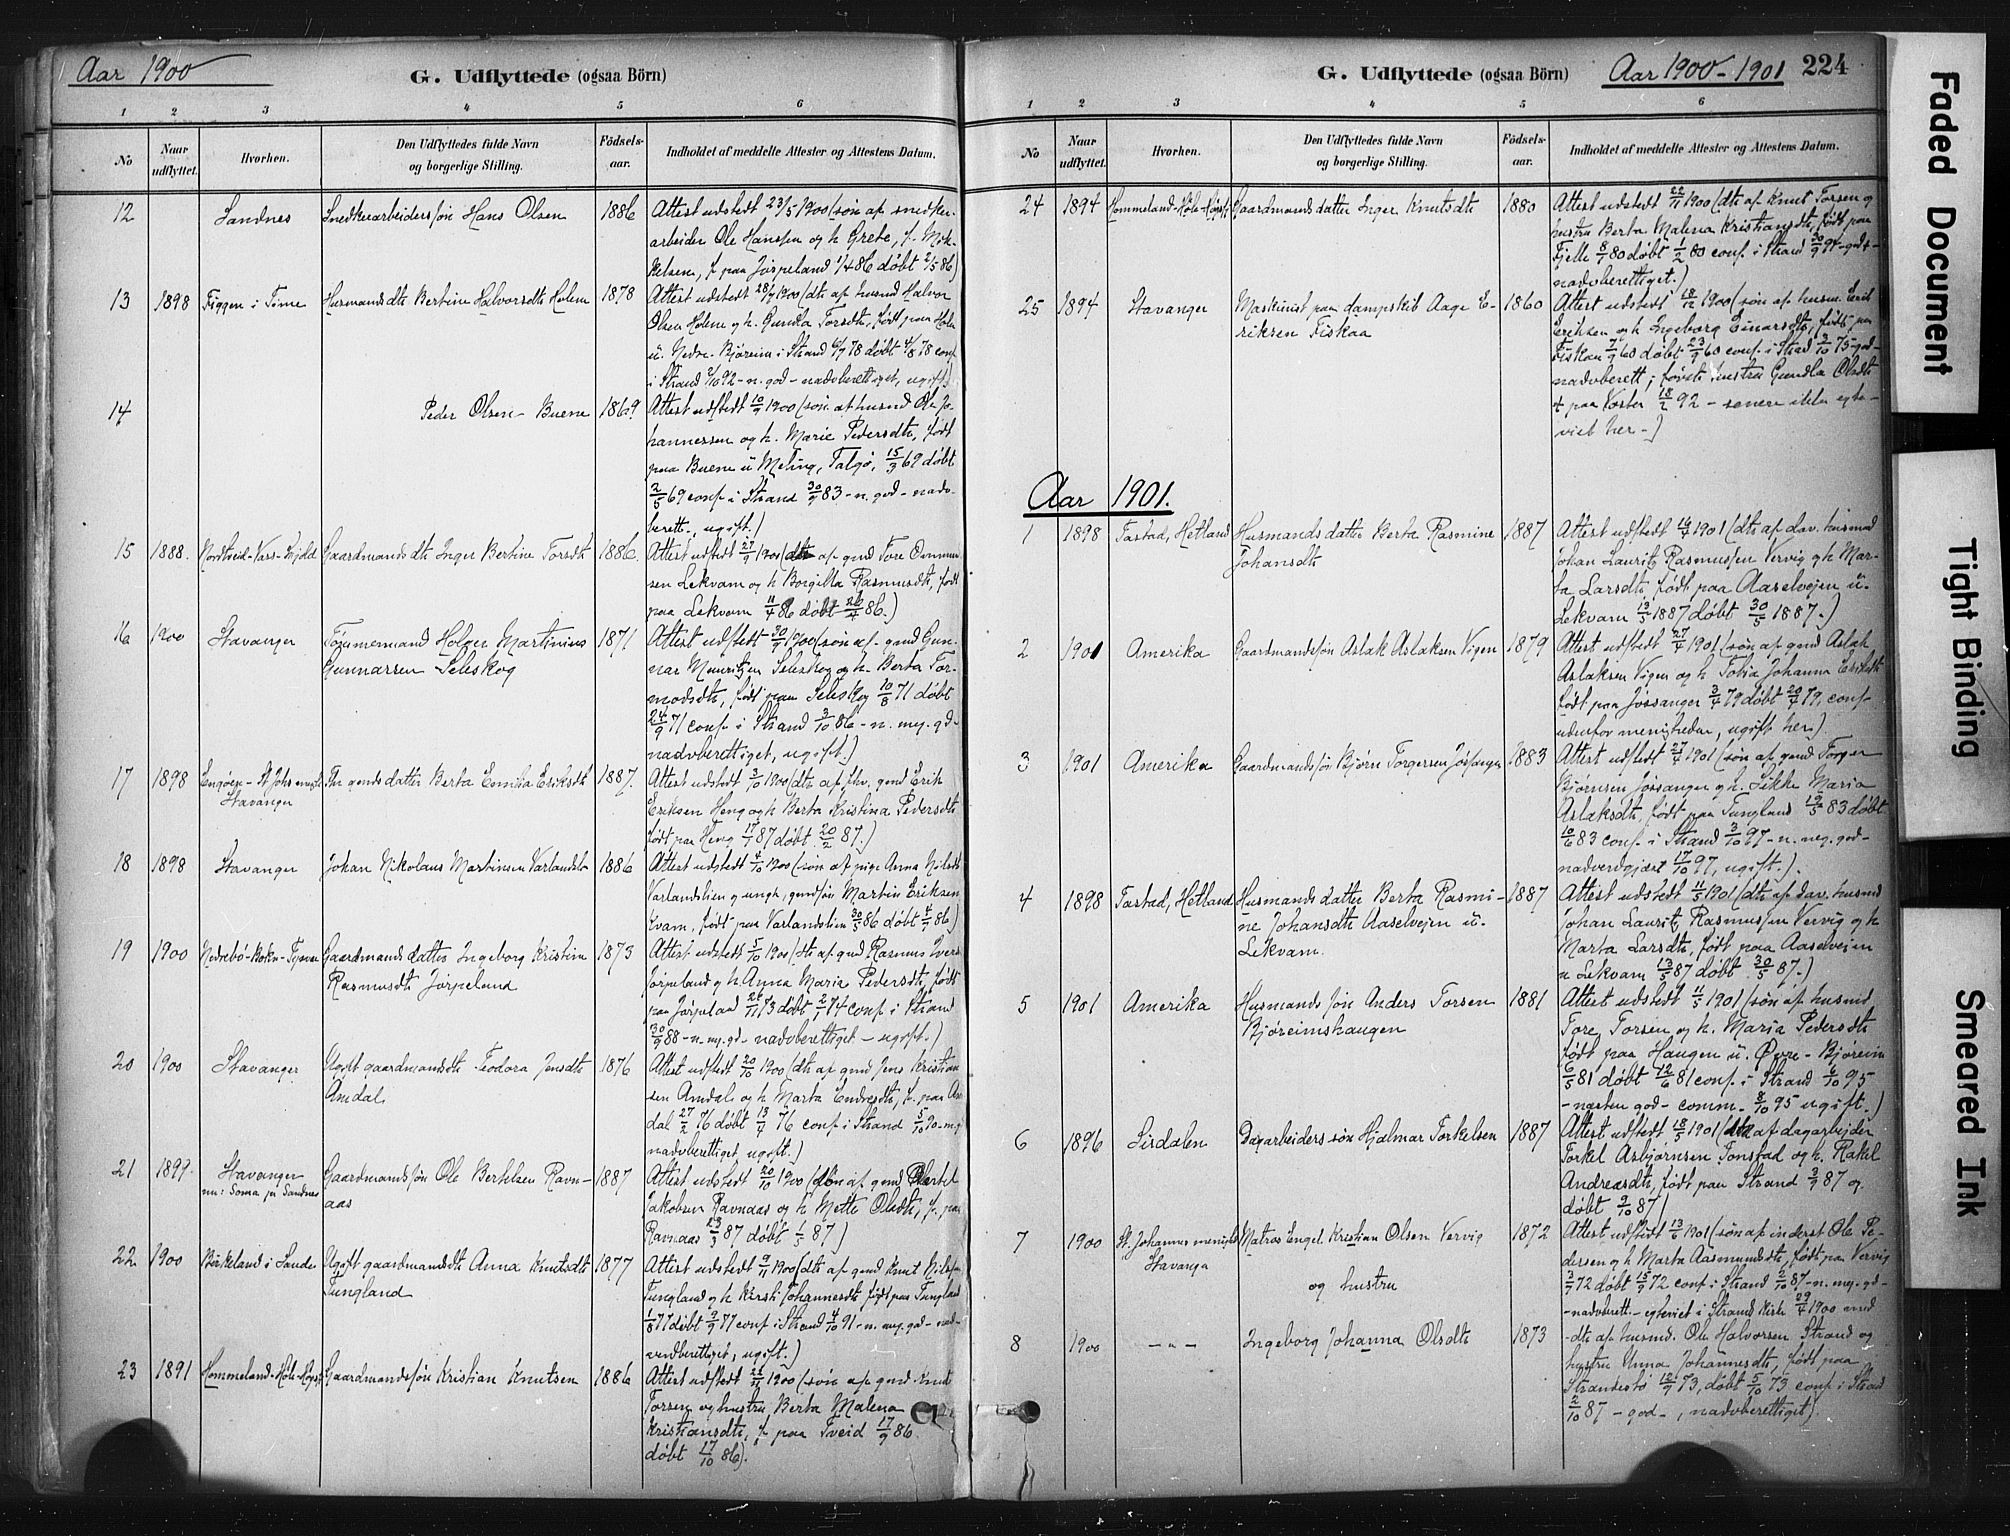 Aar 1900
G. Udflyttede (ogsaa Börn)
1 2 3 4 5 6
No
Naar udflyttet.
Hvorhen.
Den Udflyttedes fulde Navn
og borgerlige Stilling.
Födsels-
aar.
Indholdet af meddelte Attester og Attestens Datum.
12 Sandnes Snedkerarbeidersøn Hans Olsen 1886 Attest udstedt 23/5 1900 (søn af snedker-
arbeider Ole Hansen og h Grete, f. Mik-
kelsen, f. paa Jørpeland 1/4 86 døbt 2/5 86)
13 1898 Figgen i Time Husmandsdtr Bertine Halvorsdtr Holene 1878 Attest udstedt 28/7 1900 (dtr af husmd Halvor
Olsen Holene og h. Gundla Torsdtr, født paa Holen
u. Nedre-Bjøreim i Strand 6/7 78 døbt 4/8 78 conf
i Strand 2/10 92 - n. god - nadvberettiget, ugift)
14 Peder Olsen Buene 1869 Attest udstedt 10/9 1900 (søn af husmd Ole Jo-
hannessen og h. Marie Pedersdtr, født
paa Buene u Meling, Talgø, 15/3 69 døbt
2/5 69 conf i Strand 30/9 83 - n. god - nadv-
berett., ugift.)
15 1888. Gaardmandsdtr Inger Bertine Torsdtr 1886. Attest udstedt 27/9 1900 (dtr af gmd Tore Ommun-
sen Lekvam og h Borgilla Rasmusdtr, født
paa Lekvam 11/4 86 døbt 26/4 86.)
16 1900 Stavanger Tømmermand Holger Martinius 1871 Attest udstedt 30/9 1900 (søn af gmd Gun-
Gunnarsen Seleskog
nar Mauritzen Seleskog og h. Berta Tor-
modsdtr, født paa Seleskog 10/8 71 døbt
24/9 71 conf i Strand 3/10 86 - n. meg. gd-
nadvberettiget, ugift.)
17 1898 Engøen - St Johs mgh gmds datter Berta Emilia Eriksdtr 1887. Attest udstedt 3/10 1900 (dtr af fhv. gmd Erik
Stavanger
Eriksen Heng og h Berta Kristina Pedersdtr
født paa Heng 17/1 87 døbt 20/2 87.)
18 1898 Stavanger Johan Nikolaus Martinsen Varlandsli 1886 Attest udstedt 4/10 1900 (søn af pige Anna Nilsdtr
Varlandslien og ungk, gmdsøn Martin Eriksen
Kvam, født paa Varlandslien 30/5 86 døbt 4/7 86)
19 1900 Nedrebö-Bokn-Tysvær Gaardmands datter Ingeborg Kristine 1873 Attest udstedt 5/10 1900 (dtr af gmd Rasmus Iversen
Rasmusdtr Jörpeland
Jörpeland og h. Anna Maria Pedersdtr, født
paa Jörpeland 26/11 73 døbt 2/1 74 conf i Strand
30/9 88 - n. mg. gd - nadvberettiget - ugift.)
20 1900 Stavanger Ugift gaardmandsdtr Teodora Jensdtr 1876 Attest udstedt 20/10 1900 (dtr af gmd Jens Kristian-
Amdal
sen Amdal og h Marta Endresdtr, f. paa Am-
dal 27/2 76 døbt 13/4 76 conf i Strand 5/10 90 - mg
nadvberettiget, ugift.)
21 1899. Stavanger Gaardmandssøn Ole Bertelsen Ravn- 1887 Attest udstedt 20/10 1900 (søn af gmd Bertel
nu: Soma pr Sandnes aas
Jakobsen Ravnaas og h Mette Olsdtr, f. paa
Ravnaas 23/3 87 døbt 1/5 87)
22 1900 Birkeland i Sandei Ugift gaardmandsdtr Anna Knutsdtr 1877 Attest udstedt 9/11 1900 (dtr af gmd Knut Nilsen
Tungland
Tungland og h Kirsti Johannesdtr født paa Tungland
1/8 77 døbt 9/9 77 conf i Strand 4/10 91 - n. mg. gd - nad-
verdberettiget, ugift.)
23 1891 Hommeland-Höle-Högsfj Gaardmandssøn Kristian Knutsen 1886 Attest udstedt 22/11 1900 (søn af gmd Knut
Torsen og hustru Berta Malena
Kristiansdtr, f paa Tveid 17/9 86
døbt 17/10 86).
G. Udflyttede (ogsaa Börn)
Aar 1900-1901 224
1 2 3 4 5 6
No
Naar udflyttet.
Hvorhen.
Den Udflyttedes fulde Navn
og borgerlige Stilling.
Födsels-
aar.
Indholdet af meddelte Attester og Attestens Datum.
24 1894 Hommeland-Höle-Högsfj Gaardmands datter Inger Knutsdtr 1880 Attest udstedt 22/11 1900 (dtr af Knut Torsen og
hustru Berta Malena Kristiansdtr, født paa
Fjelle 8/1 80 døbt 1/2 80 conf i Strand 30/9 94 - god -
nadvberettiget.)
25 1894 Stavanger Maskinist paa dampskib Aage E- 1860 Attest udstedt 18/12 1900 (søn af husm. Erik
riksen Fiskaa
Eriksen og h Ingeborg Einarsdtr, født paa
Fiskaa 7/9 60 døbt 23/9 60 conf i Strand 3/10 75 - god -
nadvberett; første hustru Gundla Olsdtr
+ paa Voster 18/2 92 - senere ikke egte-
viet her -)
Aar 1901.
1 1898 Tastad, Hetland Husmands datter Berta Rasmine 1887 Attest udstedt 16/4 1901 (dtr af dav. husmd
Johansdtr
Johan Lauritz Rasmussen Vervig og h Mar-
ta Larsdtr, født paa Aaselvejen u.
Lekvam 13/5 1887 døbt 30/5 1887.)
2 1901 Amerika Gaardmandssøn Aslak Aslaksen Vigen 1879 Attest udstedt 27/4 1901 (søn af gmd Aslak
Aslaksen Vigen og h Tobia Johanna Eriksdtr
født paa Jössanger 3/4 79 døbt 20/4 79, conf-
udenfor menigheden, ugift her.)
3 1901 Amerika Gaardmandssøn Bjørn Torgersen Jössangen 1883 Attest udstedt 27/4 1901 (søn af gmd Torger
Bjørnsen Jössanger og h. Sikke Maria
Aslaksdtr, født paa Tungland 19/5 83 døbt
10/6 83 conf i Strand 3/10 97 - n. meg. god -
nadverdgjæst 17/10 97, ugift.)
4 1898 Tastad, Hetland Husmands datter Berta Rasmi- 1887 Attest udstedt 11/5 1901 (dtr af dav. husmd
ne Johansdtr Aaselvejen u.
Lekvam.
Johan Lauritz Rasmussen Vervig og h
Marta Larsdtr, født paa Aaselveien
u Lekvam 13/5 87 døbt 30/5 87.)
5 1901 Amerika Husmands søn Anders Torsen 1881 Attest udstedt 11/5 1901 (søn af husmd
Björeimshaugen
Tore Torsen og h. Maria Pedersdtr
født paa Haugen u. Øvre-Björeim
6/5 81 døbt 12/6 81 conf i Strand 6/10 95
- næsten god - comm. 8/10 95 ugift.)
6 1896 Sirdalen Dagarbeiders søn Hjalmar Torkelsen 1887 Attest udstedt 18/5 1901 (af dagarbejder
Torkel Asbjörnsen Tonstad og h. Rakel
Andreasdtr, født paa Strand 3/9 87 og
døbt 9/10 87)
7 1900 St. Johannes menighed Matros Engel Kristian Olsen Vervig 1872 Attest udstedt 13/6 1901 (søn af inderst Ole Pe-
Stavanger
og hustru
dersen og h Marta Aasmundsdtr, født paa Vervig
3/9 72 døbt 15/9 72 conf i Strand 2/10 87 - n. mg. gd -
- nadvberett. - egteviet i Strand Kirke 29/4 1900 med
8 1900 - " - Ingeborg Johanna Olsdtr 1873 - dtr af husmd. Ole Halvorsen Strand og
hustru Anna Johannesdtr, født paa
Strandestö 12/9 73, døbt 5/10 73 conf i Strand
2/10 87 - god -, nadvberettiget).
Faded Document
Tight Binding
Smeared Ink